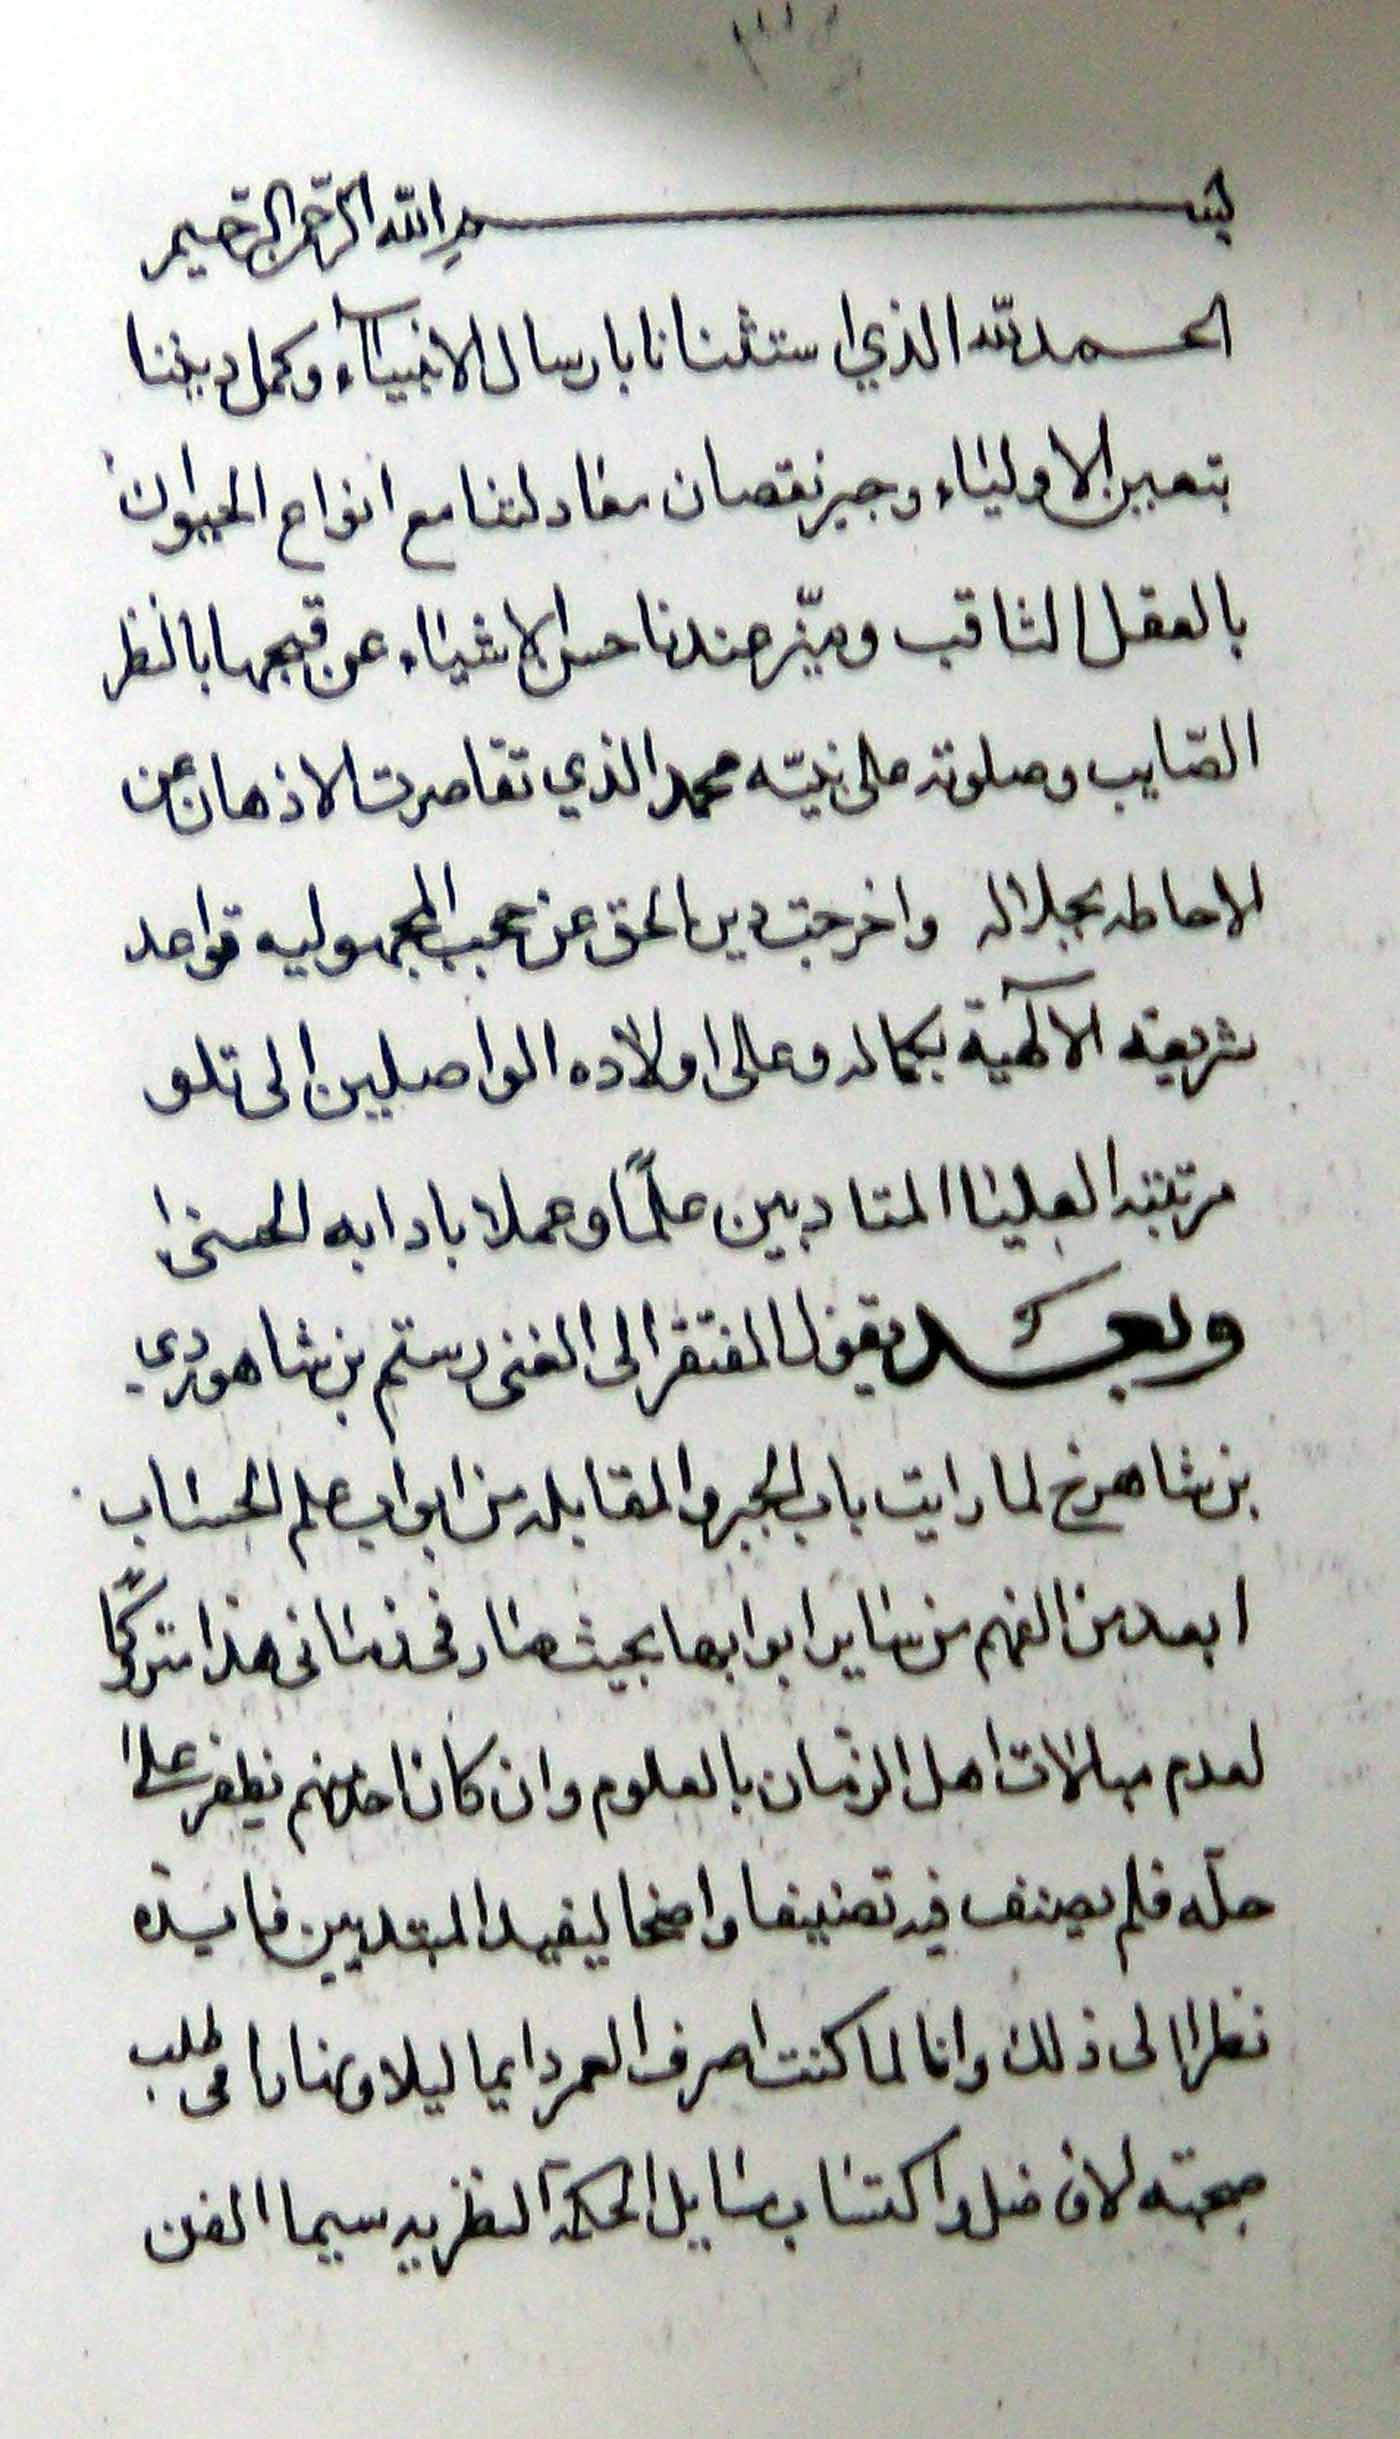 بسم الله الرحمن الرحيم
الحمد لله الذي استثنانا بارسال الانبياء وكمل ديننا
بتعيين الاولياء وجبر نقصان معادلتنا مع انواع الحيوان
بالعقل الثاقب وميّز عندنا حسن الاشياء عن قبحها بالنظر
الصّايب وصلوته على نبيّه محمد الذي تقاصرت الاذهان عن
الاحاطه بجلاله واخرجت دين الحق عن حجب المجهوليه قواعد
شريعته الآلهية بكماله وعلى اولاده الواصلين الى تلو
مرتبته العليا المتادبين علمًا وعملا بادابه الحسنى
وبعد يقول المفتقر الى الغنى رستم بن شاهوردي
بن شاهرخ لما رايت باب الجبر والمقابله من ابواب علم الحساب
ابعد من الفهم من ساير ابوابها بحيث صار في زمانى هذا متروكًا
لعدم مبالات اهل الزمان بالعلوم وان كان احد منهم يظفر على
حلّه فلم يصنف فيه تصنيفا واضحا ليفيد المبتديين فايدة
نظرا الى ذلك وانا لما كنت اصرف العمر دايما ليلا ونهارا في طلب
صحبته الافاضل واكتساب مسايل الحكمة النظريه سيما الفن